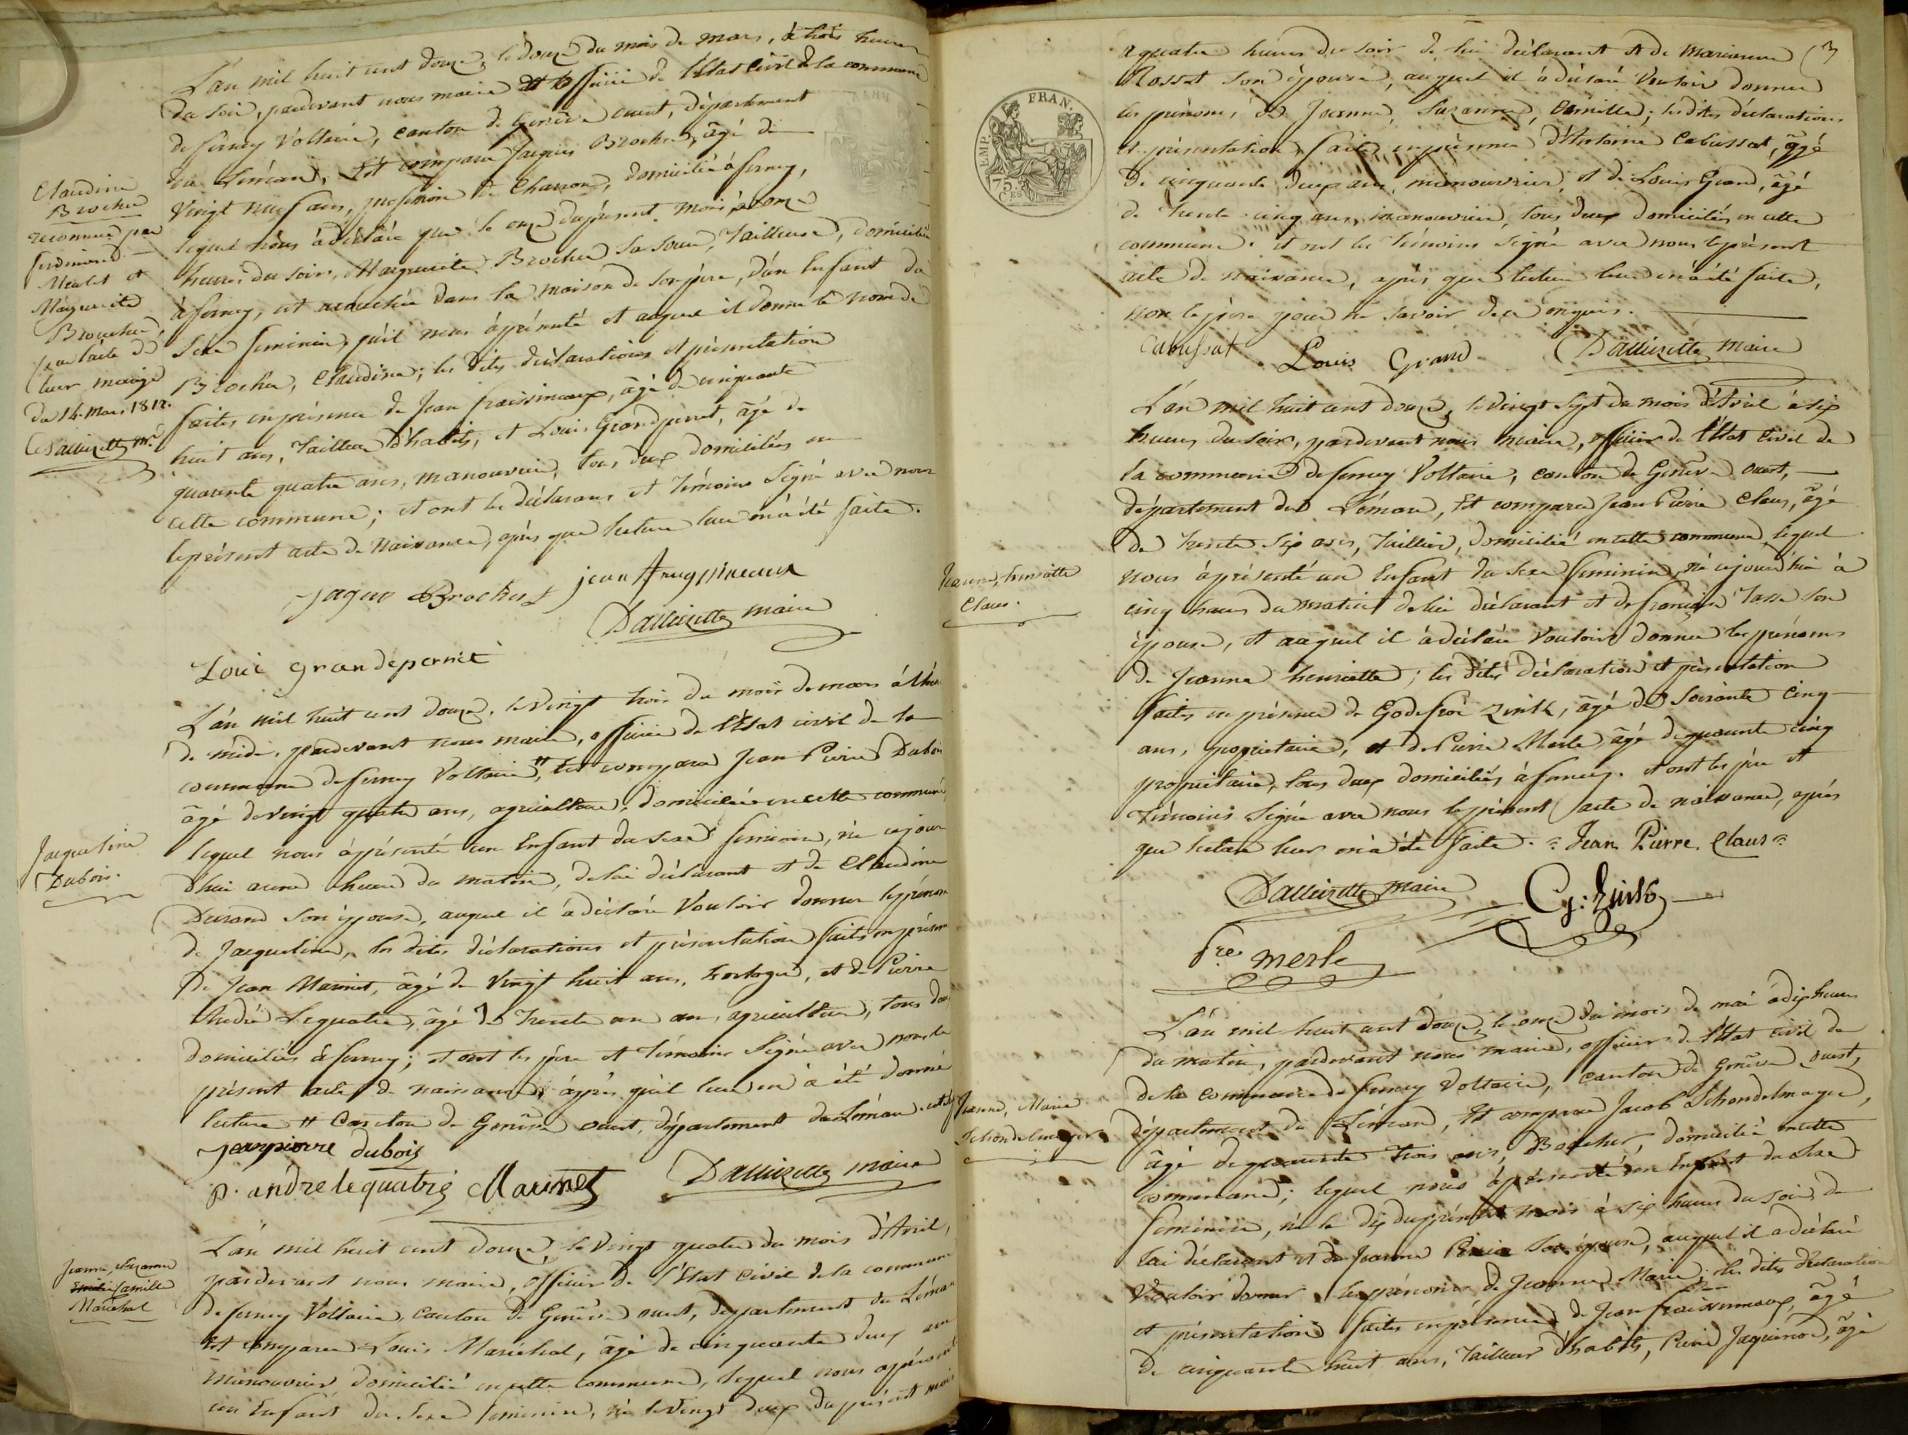 L'an mil huit cent douze, le douze du mois de mars, à trois heures
du soir, pardevant nous maire et officier de l'Etat Civil de la commune
de ferney Voltaire, canton de Genève ouest, département
du Léman, Est comparu Jaques Brocher, âgé de
vingt neuf ans, profession de Charron, domicilié à ferney,
lequel nous à déclaré que le onze du présent mois à onze
heures du soir, Marguerite Brocher sa soeur, Tailleuse, domiciliée
à ferney, est acouchée dans la maison de son père, d'un Enfant du
Séxe feminin, qu'il nous à présenté et auquel il donne le nom de
Brocher, Claudine; les dites déclarations et présentation
faites en présence de Jean fraissineaux, âgé de cinquante
huit ans, Tailleur d'habits, et Louis Grandperret, âgé de
quarente quatre ans, manouvrier, tous deux domiciliés en
cette commune; et ont les déclarans et témoins Signé avec nous
le présent acte de Naissance, après que lecture leur en à été faite.
Claudine
Brocher
reconnue par
ferdinand
Meulet et
Marguerite
Brocher,
par l'acte de
leur mariage
du 14 Mars 1812.
Dallizette m.re
Jaque Brocher jean frayssineaux
Dallizette maire
Loui grandeperret
L'an mil huit cent douze, le vingt trois du mois de mars à l'heure
de midi, pardevant nous maire, officier de l'Etat civil de la
commune de ferney Voltaire, # Est comparu Jean Pierre Dubois
âgé de vingt quatre ans, agriculteur, domicilié en cette commune,
lequel nous à présenté un Enfant du sexe feminin, né cejour
d'hui à une heure du matin, de lui déclarant et de Claudine
Durand son épouse, auquel il à déclaré Vouloir donner le prénom
de Jacqueline, les dites déclarations et présentation faites en présence
de Jean Marinet, âgé de vingt huit ans, horloger, et de Pierre
André Lequatre, âgé de trente un an, agriculteur, tous deux
domiciliés à ferney; et ont les père et témoins Signé avec nous le
présent acte de naissance, après qu'il leur en à été donné
lecture # Canton de Genève ouest, département du Léman.
Jaqueline
Dubois.
jeanpierre dubois
p. andre lequatre Marinet Dallizette maire
L'an mil huit cent douze, le vingt quatre du mois d'Avril,
pardevant nous maire, officier de l'Etat Civil de la commune
de ferney Voltaire, canton de Genève ouest, département du Léman
Est comparu Louis Maréchal, âgé de cinquante deux ans
manouvrier domicilié en cette commune, lequel nous à présenté
un Enfant du Sexe feminin, né le vingt deux du présent mois
Jeanne, Suzanne
Camille
Maréchal
3
à quatre heures du soir de lui déclarant et de Marianne
Rossat son épouse, auquel il à déclaré Vouloir donner
les prénoms de Jeanne, Suzanne, Camille; les dites déclarations
et présentation faites en présence d'Antoine Cabussat, âgé
de cinquante deux ans, manouvrier, et de Louis Grand, âgé
de trente cinq ans, manouvrier, tous deux domiciliés en cette
commune. et ont les témoins Signé avec nous le présent
acte de naissance, après que lecture leur en à été faite,
non le père pour ne savoir de ce enquis.
FRAN.
EMP.
75 C.
Cabussat Louis Grand Dallizette maire
L'an mil huit cent douze, le vingt sept du mois d'Avril à six
heures du soir, pardevant nous maire, officier de l'Etat Civil de
la commune de ferney Voltaire, canton de Genève ouest,
département du Léman, Est comparu Jean Pierre Claus, âgé
de trente six ans, Taillier, domicilié en cette commune, lequel
nous à présenté un Enfant du Sexe feminin, né cejourd'hui à
cinq heures du matin de lui déclarant et de françoise Tasse son
épouse, et auquel il à déclaré Vouloir donner les prénoms
de Jeanne henriette; les dites déclaration et présentation
faites en présence de Godefroi Zinik, âgé de Soixante cinq
ans, propriétaire, et de Pierre Merle, âgé de quarante cinq
propriétaire, tous deux domiciliés à ferney. et ont les père et
témoins Signé avec nous le présent acte de naissance, après
que lecture leur en à été faite. Jean Pierre Claus
Jeanne, henriette
Claus.
Dallizette maire
Pre merle
L'an mil huit cent douze, le onze du mois de mai à dix heures
du matin, pardevant nous maire, officier de l'Etat Civil de
de la commune de ferney Voltaire, canton de Genève ouest,
département du Léman, Est comparu Jacob Schondelmayer,
âgé de quarante trois ans, Boucher, domicilié en cette
commune; lequel nous à présenté un Enfant du Sexe
feminin, né le dix du présent mois à six heures du soir de
lui déclarant et de Jeanne son épouse, auquel il à déclaré
Vouloir donner les prénoms de Jeanne, Marie; les dites déclaration
et présentation faites en présence de Jean fraissineaux, âgé
de cinquante huit ans, Tailleur d'habits, Pierre Jaquinod, âgé
Jeanne, Marie
Schondelmayer